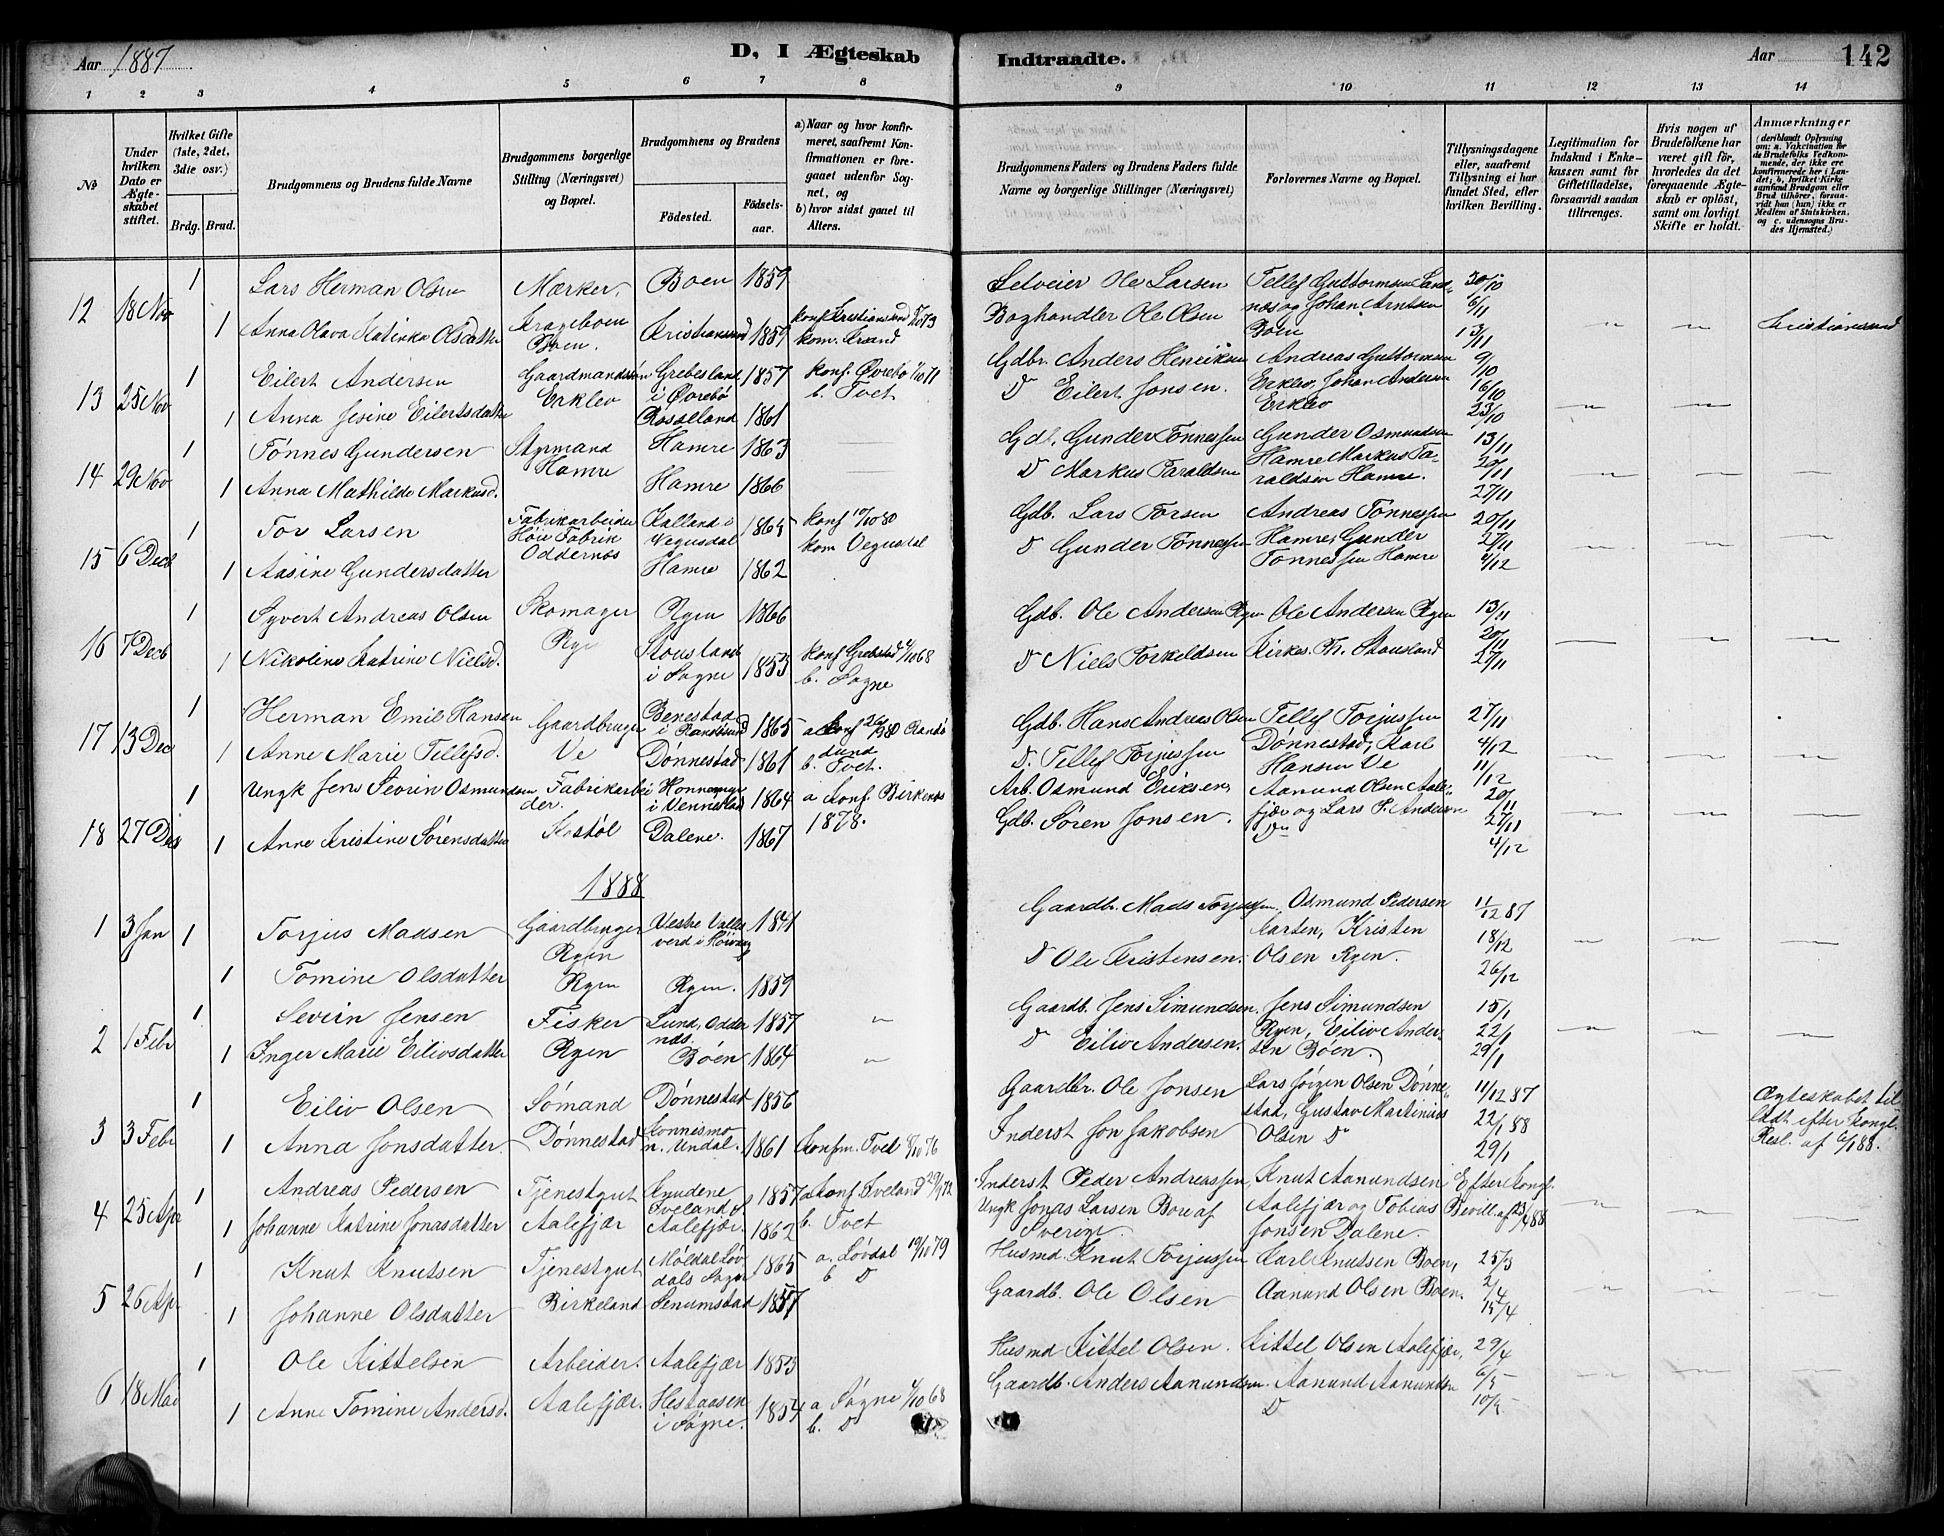 Aar 1887
D, I Ægteskab
Indtraadte.
Aar
142
1 2 3 4 5 6 7 8 9 10 11 12 13 14
No
Under hvilken Dato er Ægteskabet stiftet.
Hvilket Gifte (1ste, 2det, 3die osv.)
Brdg. Brud.
Brudgommens og Brudens fulde Navne
Brudgommens borgerlige Stilling (Næringsvei) og Bopæl.
Brudgommens og Brudens
Fødested.
Fødselsaar.
a) Naar og hvor konfirmeret, saafremt Konfirmationen er foregaaet udenfor Sognet, og
b) hvor sidst gaaet til Alters.
Brudgommens Faders og Brudens Faders fulde Navne og borgerlige Stillinger (Næringsvei)
Forlovernes Navne og Bopæl.
Tillysningsdagene eller, saafremt Tillysning ei har fundet Sted, efter hvilken Bevilling.
Legitimation for Indskud i Enkekassen samt for Giftetilladelse, forsaavidt saadan tiltrænges.
Hvis nogen af Brudefolkene har været gift før, hvorledes da det foregaaende Ægteskab er opløst, samt om lovligt Skifte er holdt.
Anmærkninger
(deriblandt Oplysning om: a. Vakcination for de Brudefolks Vedkommende, der ikke ere konfirmerede her i Landet; b. hvilket Kirkesamfund Brudgom eller Brud tilhører, forsaavidt han (hun) ikke er Medlem af Statskirken, og c. udensogns Brudes Hjemsted.)
12 18 Nov 1 Lars Herman Olsen Mærker, Boen 1859 Selveier Ole Larsen Tellef Guttormsen Landnes og Johan Arntsen Boen 30/10 6/11 13/11
1 Anna Olava Katinka Olsdatter Krageboen Boen. Kristianssand 1859 konf. Kristianssand 73 kom. Krsand Boghandler Ole Olsen Kristianssand
13 25 Nov 1 Eilert Andersen Gaardmandssøn Erklev Grebesland i Øvrebø 1857 konf. Øvrebø 71 b. Tvet. Gdbr. Anders Henriksen Andreas Guttormsen Erklev, Johan Andersen Erklev 9/10 16/10 23/10
1 Anna Jesine Eilertsdatter Røsseland 1861 D Eilert Jonsen.
14 29 Nov 1 Tønnes Gundersen Styrmand Hamre Hamre 1863 Gdb. Gunder Tønnessen Gunder Osmundsen Hamre Markus Taraldsen Hamre. 13/11 20/11 27/11
1 Anna Mathilde Markusd. Hamre 1866 D Markus Taraldsen
15 6 Decb 1 Tor Larsen Fabrikarbeider Høie Fabrik Oddernæs Kalland i Vegusdal 1865 konf 10/10 80 kom Vegusdal Gdb. Lars Torsen Andreas Tønnessen Hamre, Gunder Tønnessen Hamre 20/11 27/11 4/12
1 Aasine Gundersdatter Hamre 1862 D Gunder Tønnessen
16 7 Decb 1 Syvert Andreas Olsen Skomager Ryen Ryen 1866 Gdb. Ole Andersen Ryen Ole Andersen Ryen 13/11 20/11 27/11
1 Nikoline Katrine Nielsd. Stousland i Søgne 1853 b. Søgne D Niels Torkeldsen Kirkes. Stousland
17 13 Dec 1 Herman Emil Hansen Gaardbruger Ve Benestad i Randøsund 1865 a konf 26/9 80 Randøsund b. Tvet. Gdb. Hans Andreas Olsen Tellef Torjussen Dønnestad, Karl Hansen Ve 27/11 4/12 11/12
1 Anne Marie Tellefsd. Dønnestad 1861 D. Tellef Torjussen
18 27 Dec 1 Ungk Jens Severin Osmundsen Fabrikarbeider. Kostøl i Vennesla 1864 a konf. Birkenes 1878. Arb. Osmund Eriksen, Aanund Olsen Aalefjær og Lars P. Andersen Dn 20/11 27/11 4/12
1 Anne Kristine Sørensdatter Dalene. 1867 Gdb. Søren Jonsen.
1888
1 3 Jan 1 Torjus Madsen Gaardbruger Ryen Vestre Vallesverd i Høivaag 1841 Gaardb. Mads Torjussen, Osmund Pedersen Aarten, Kristen Olsen Ryen. 11/12 87 18/12 26/12
1 Tomine Olsdatter Ryen Ryen. 1859 D Ole Kristensen.
2 1 Febr 1 Severin Jensen Fisker Lund, Oddernæs. 1857 Gaardb. Jens Simundsen. Jens Simundsen Ryen, Eiliv Andersen Bøen. 15/1 22/1 29/1
1 Inger Marie Eilivsdatter Ryen Bøen 1864 D Eiliv Andersen.
3 3 Febr 1 Eiliv Olsen Sømand Dønnestad 1856 Gaardbr. Ole Jonsen Lars Jørgen Olsen Dønnestad, Gustav Martinius Olsen D 11/12 87 22/1 88 29/1 Ægteskabet tilladt efter Kongl. Resl. af 6/1 88.
1 Anna Jonsdatter Dønnestad Konnismo n. Undal. 1861 Konfm. Tved 8/10 76 Inderst Jon Jakobsen
4 25 Apr 1 Andreas Pedersen Tjenestgut Knudene Iveland 1857 a Konf Iveland 29/9 72 b. Tvet Inderst Peder Andreassen, Knut Aanundsen Aalefjær og Tobias Jonsen Dalene. Efter Kongl. Bevill. af 23/4 88
1 Johanne Katrine Jonasdatter Aalefjær Aalefjær. 1862 Ungk Jonas Larsen Bou af Sverige.
5 26 Apr 1 Knut Knutsen Tjenestgut Møldal Løvdals Sogn 1865 a. Løvdal 19/10 79 b D Husmd. Knut Torjussen Karl Knutsen Boen, Aanund Olsen Boen. 25/3 2/4 15/4
1 Johanne Olsdatter Birkeland Senumstad 1857 Gaardb. Ole Olsen
6 18 Mai 1 Ole Kittelsen Arbeider. Aalefjær 1853 Husmd Kittel Olsen. Kittel Olsen Aalefjær, Aanund Aanundsen D 29/4 6/5 10/5
1 Anne Tomine Andersd. Aalefjær. Hestaasen i Søgne. 1854 a Søgne 68 b. D Gaardb. Anders Aanundsen.